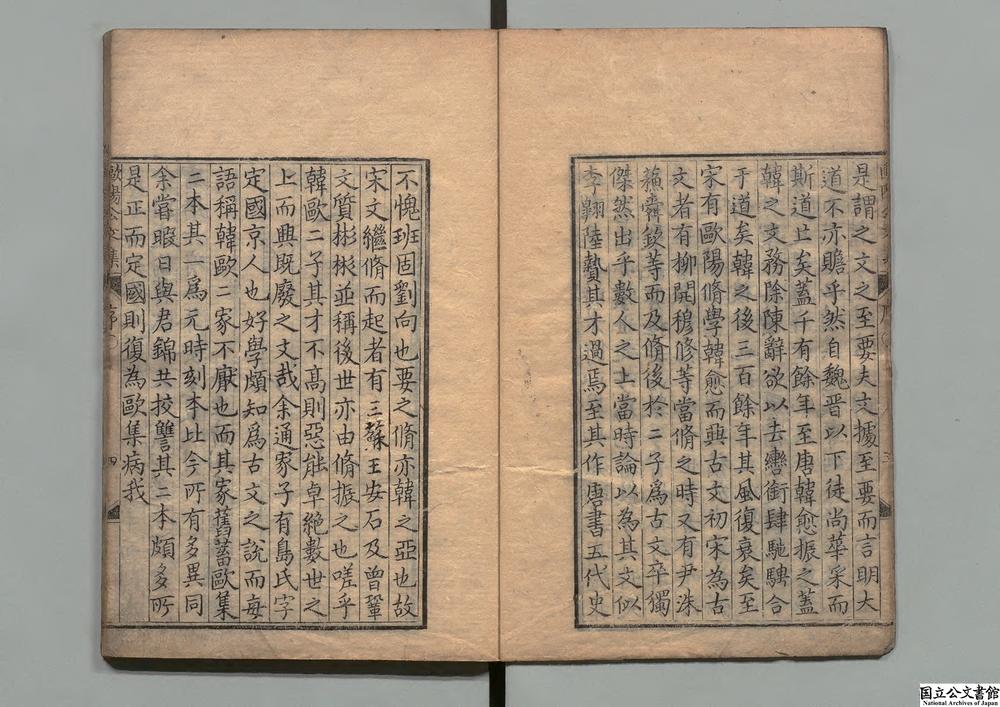 是謂之文之至要夫文據至要而言明大
道不亦贍乎然自魏晋以下徒尚華采而
斯道止矣蓋千有餘年至唐韓愈振之蓋
韓之文務除陳辭欲以去轡銜肆馳騁合
于道矣韓之後三百餘年其風復衰矣至
宋有歐陽脩學韓愈而興古文初宋為古
文者有柳開穆修等當脩之時又有尹洙
蘓舜欽等而及脩後於二子為古文卒獨
傑然出乎數人之上當時論以為其文似
李翺陸贄其才過焉至其作唐書五代史
不愧班固劉向也要之脩亦韓之亞也故
宋文繼脩而起者有三蘇王安石及曾鞏
文質彬彬並稱後世亦由脩振之也嗟乎
韓歐二子其才不高則惡能卓絶數世之
上而興既廢之文哉余通家子有島氏字
定國京人也好學頗知為古文之說而每
語稱韓歐二家不厭也而其家舊蓄歐集
二本其一為元時刻本比今所有多異同
余嘗暇日與君錦共挍讐其二本頗多所
是正而定國則復為歐集病我
序
四
国立公文書館
National Archives of Japan